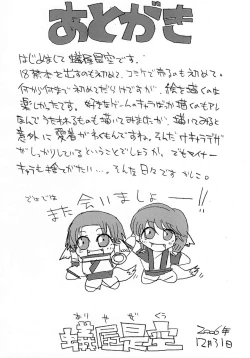 あとがき
はじめまして蟻屋星空です。
18禁本を出すのも初めて、コミケで売るのも初めて。
何から何まで初めてだらけですが、絵を描くのは
楽しかったです。好きなゲームのキャラばかり描くのもアレ
なんでうちわるものも描いてみましたが、描いてみると
意外に愛着がわくもんですね。そんだけキャラデザ
がしっかりしているということでしょうか。でもマイナー
キャラも捨てがたい…。そんな日々です かしこ。
ではでは
また会いましょー!!
ありやせいくう
蟻屋星空
2006年
12月31日